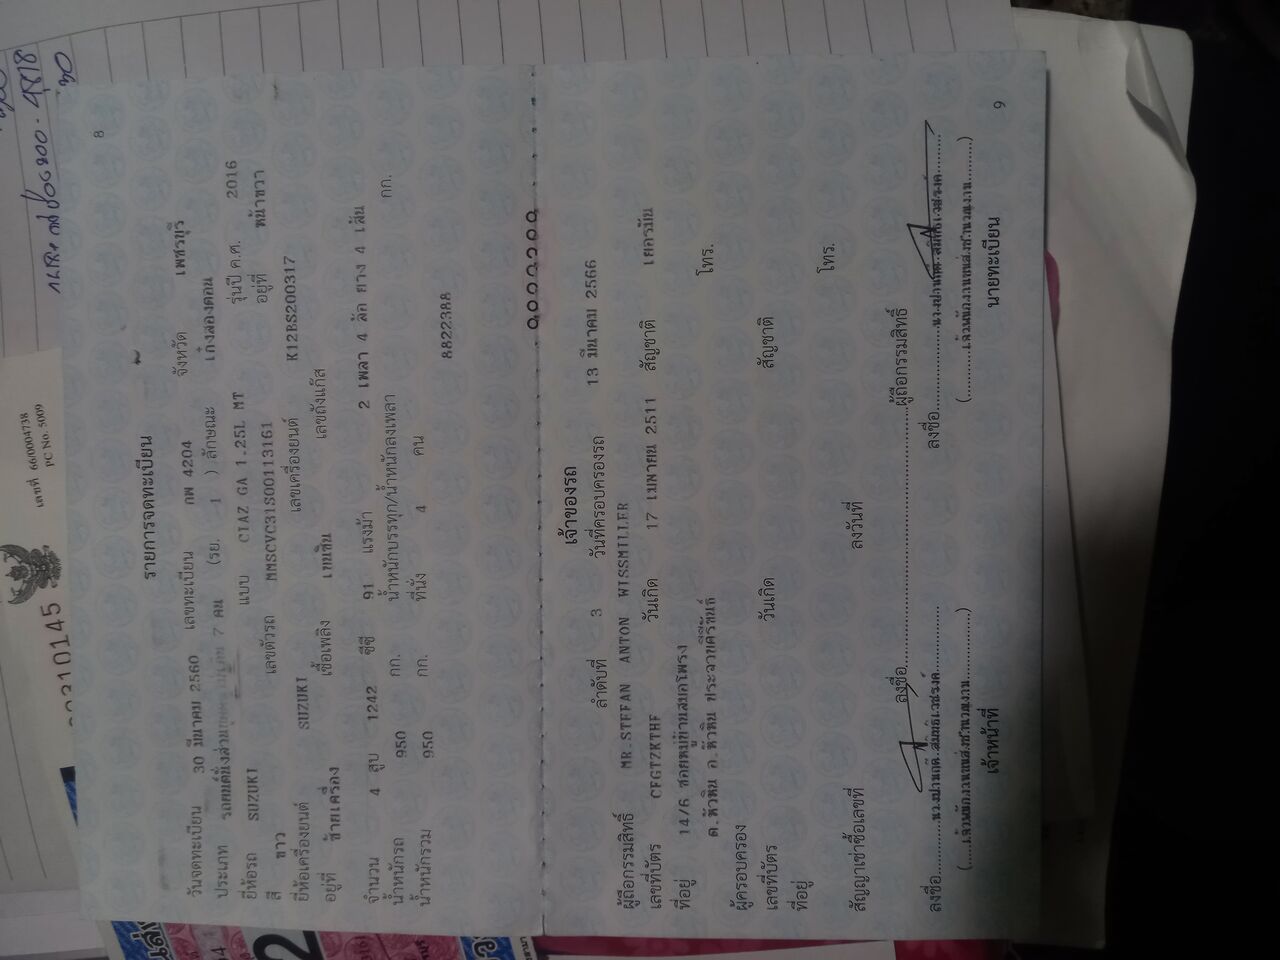 8
รายการจดทะเบียน
วันจดทะเบียน 30 มีนาคม 2560 เลขทะเบียน กพ 4204 จังหวัด เพชรบุรี
ประเภท รถยนต์นั่งส่วนบุคคลไม่เกิน 7 คน (รย. 1 ) ลักษณะ เก๋งสองตอน
ยี่ห้อรถ SUZUKI แบบ CIAZ GA 1.25L MT รุ่นปี ค.ศ. 2016
สี ขาว เลขตัวรถ MMSCVC31S00113161 อยู่ที่ หน้าขวา
ยี่ห้อเครื่องยนต์ SUZUKI เลขเครื่องยนต์ K12BS200317
อยู่ที่ ซ้ายเครื่อง เชื้อเพลิง เบนซิน เลขถังแก๊ส
จำนวน 4 สูบ 1242 ซีซี 91 แรงม้า 2 เพลา 4 ล้อ ยาง 4 เส้น
น้ำหนักรถ 950 กก. น้ำหนักบรรทุก/น้ำหนักลงเพลา กก.
น้ำหนักรวม 950 กก. ที่นั่ง 4 คน
8822388
เจ้าของรถ
ลำดับที่ 3 วันที่ครอบครองรถ 13 มีนาคม 2566
ผู้ถือกรรมสิทธิ์ MR.STEFAN ANTON WISSMILLER
เลขที่บัตร CFGTZKTHF วันเกิด 17 เมษายน 2511 สัญชาติ เยอรมัน
ที่อยู่ 14/6 ซอยหมู่บ้านสมอโพรง
ต.หัวหิน อ.หัวหิน ประจวบคีรีขันธ์ โทร.
ผู้ครอบครอง
เลขที่บัตร วันเกิด สัญชาติ
ที่อยู่ โทร.
สัญญาเช่าซื้อเลขที่ ลงวันที่
ลงชื่อ ผู้ถือกรรมสิทธิ์
ลงชื่อ ลงชื่อ
(เจ้าพนักงานขนส่งชำนาญงาน) (เจ้าพนักงานขนส่งชำนาญงาน)
เจ้าหน้าที่ นายทะเบียน
9
เลขที่ 66/0004738
PC No. 5009
0210145